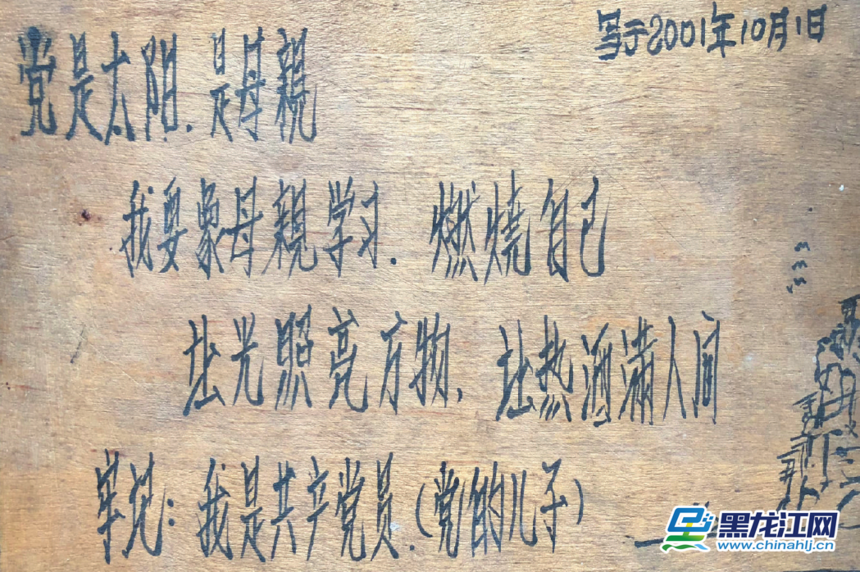 写于2001年10月1日
党是太阳.是母親
我要象母親学习.燃烧自己
让光照亮万物.让热洒满人间
牢记:我是共产党员.(党的儿子)
黑龙江网
www.chinahlj.cn